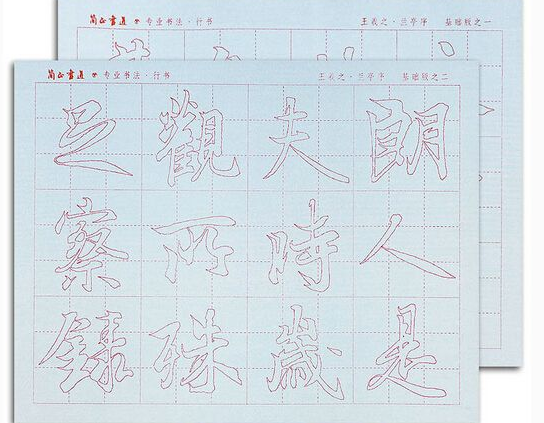 简正書道 专业书法·行书 王羲之·兰亭序 基础版之一
简正書道 专业书法·行书 王羲之·兰亭序 基础版之二
足觀夫朗
察所時人
錄殊歲是